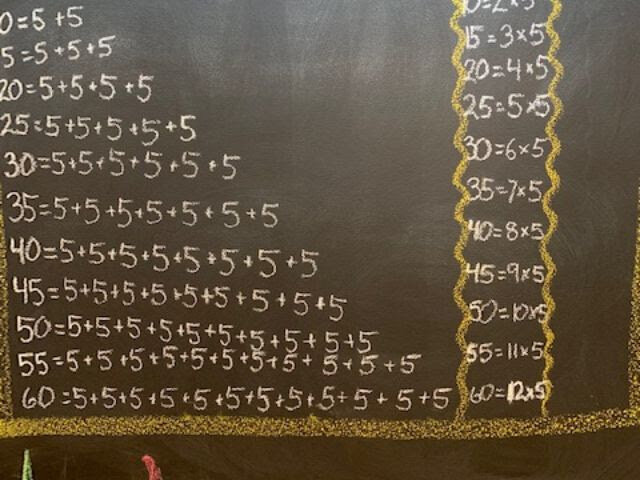 0=5+5
5=5+5+5
20=5+5+5+5
25=5+5+5+5+5
30=5+5+5+5+5+5
35=5+5+5+5+5+5+5
40=5+5+5+5+5+5+5+5
45=5+5+5+5+5+5+5+5+5
50=5+5+5+5+5+5+5+5+5+5
55=5+5+5+5+5+5+5+5+5+5+5
60=5+5+5+5+5+5+5+5+5+5+5+5
10=2×5
15=3×5
20=4×5
25=5×5
30=6×5
35=7×5
40=8×5
45=9×5
50=10×5
55=11×5
60=12×5